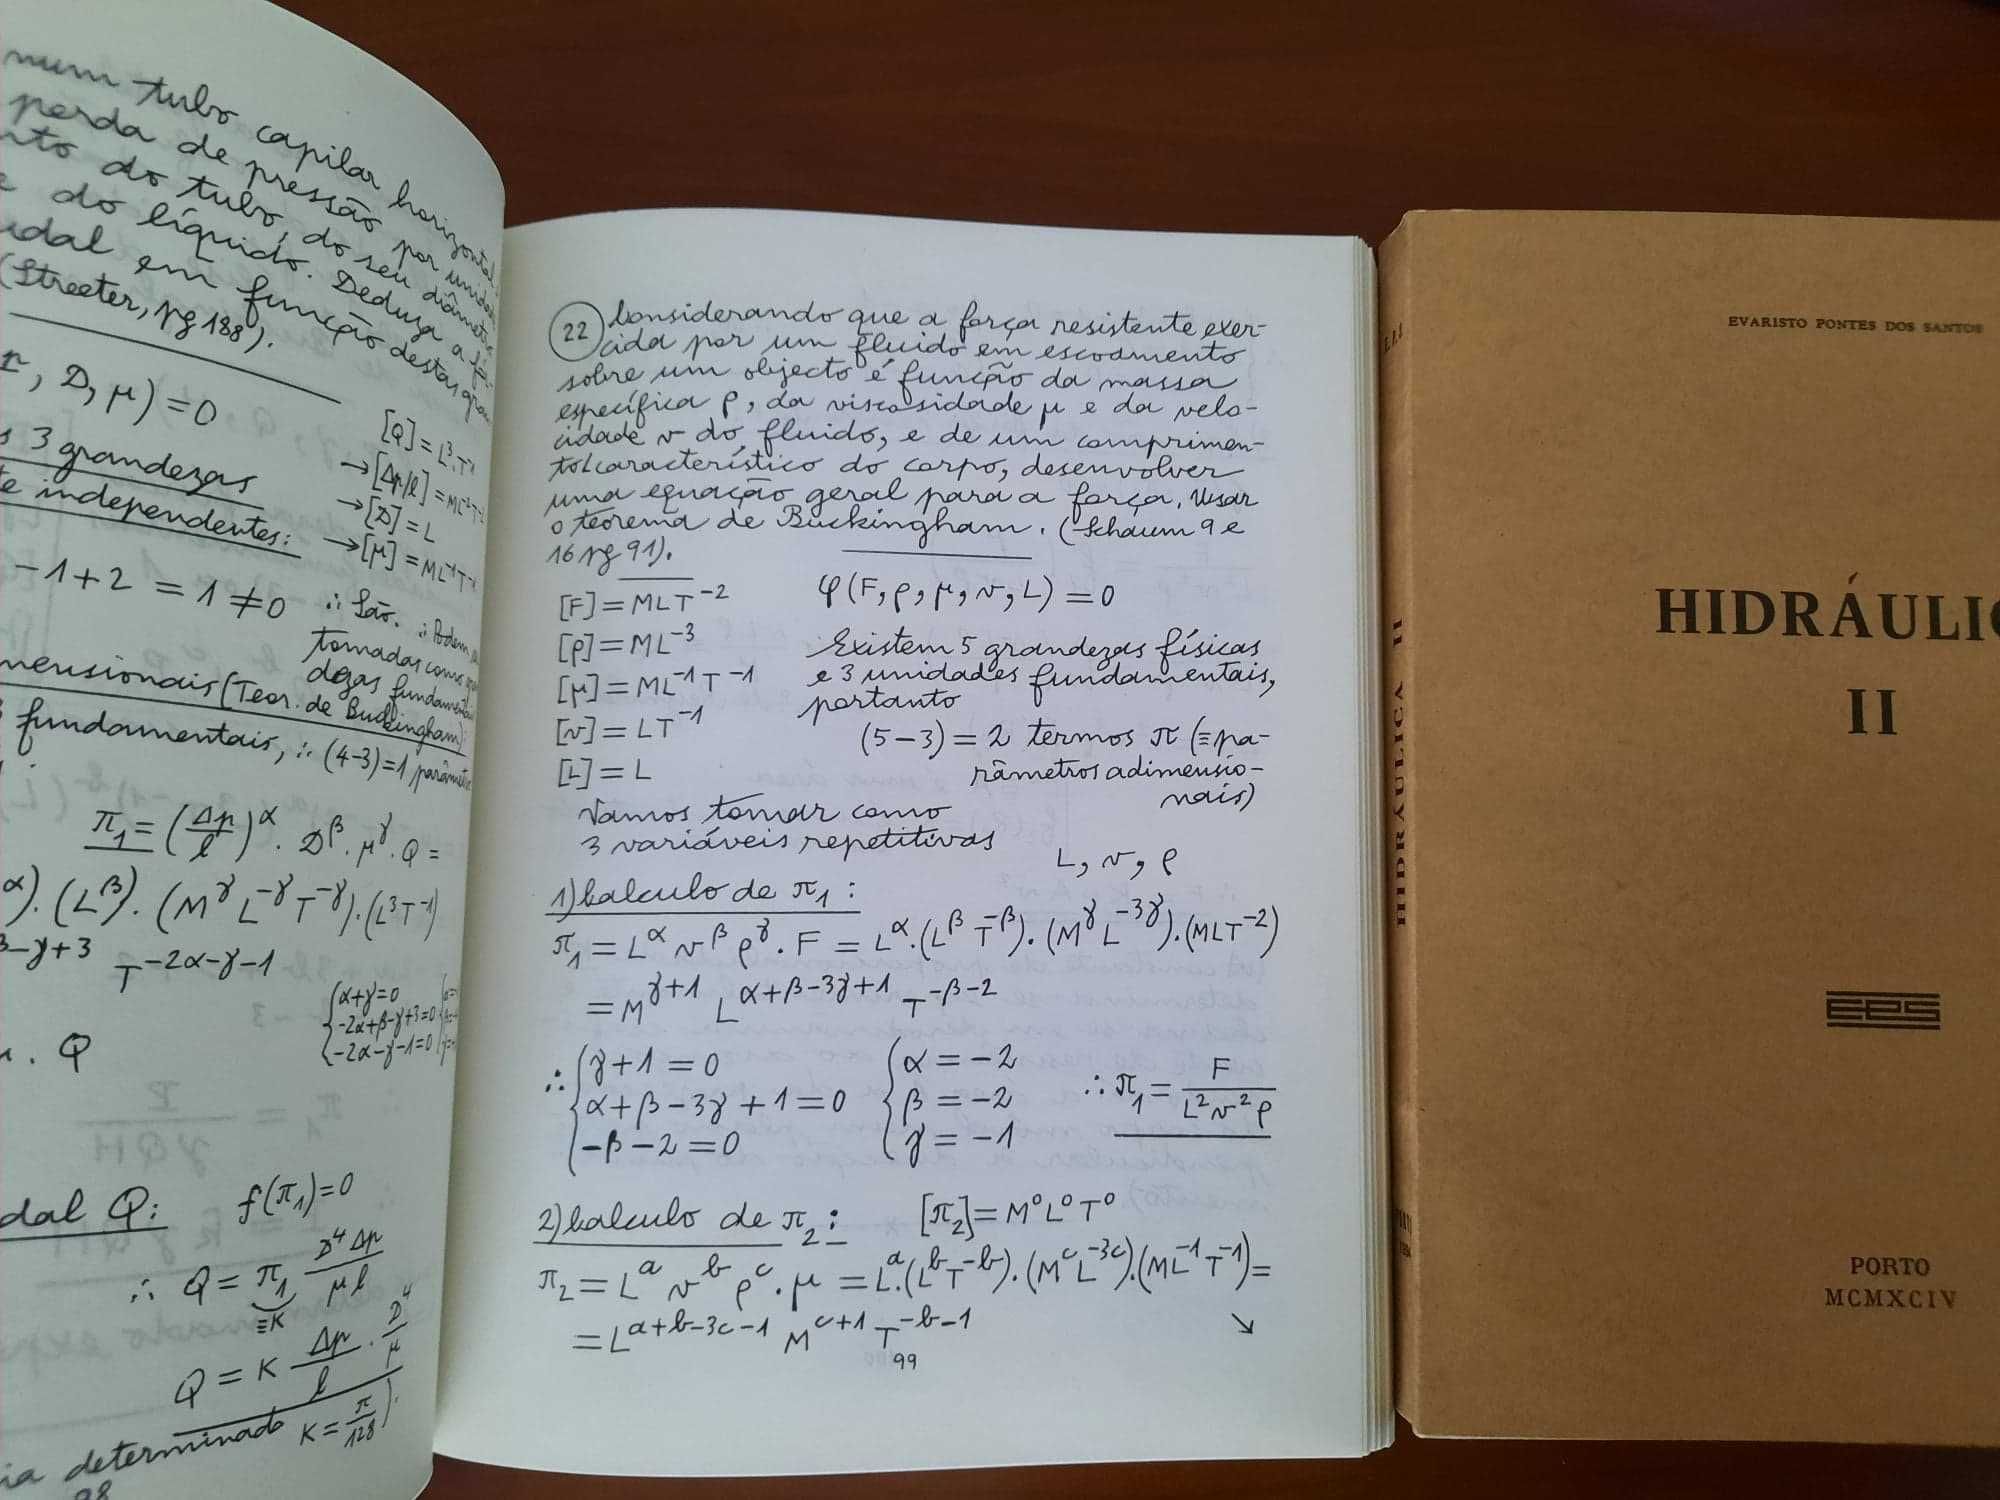 num tubo capilar horizontal.
perda de pressão por unidade
nto do tubo, do seu diâmetro
do líquido. Deduza a fór-
udal em função destas gran-
(Streeter, pg 188).
, D, μ) = 0
[Q] = L³T⁻¹
s 3 grandezas
→ [Δp/l] = ML⁻²T⁻²
→ [D] = L
te independentes:
→ [μ] = ML⁻¹T⁻¹
-1+2 = 1 ≠ 0 ∴ São. ∴ Podem
tomadas como
dezas fundamentais
mensionais (Teor. de Buckingham):
fundamentais, ∴ (4-3)=1 parâmetro
π₁ = (Δp/l)^α . D^β . μ^γ . Q =
α). (L^β). (M^γ L^-γ T^-γ). (L³T⁻¹)
β-γ+3 T^-2α-γ-1
{α+γ=0
-2α+β-γ+3=0
-2α-γ-1=0
. Q
dal Q: f(π₁)=0
∴ Q = π₁ D⁴Δp/μl
≡K
Q = K Δp/l . D⁴/μ
ia determinado K = π/128).
98
(22) Considerando que a força resistente exer-
cida por um fluido em escoamento
sobre um objecto é função da massa
específica ρ, da viscosidade μ e da velo-
cidade v do fluido, e de um comprimen-
to L característico do corpo, desenvolver
uma equação geral para a força. Usar
o teorema de Buckingham. (Schaum 9 e
16 pg 91).
[F] = MLT⁻² φ(F, ρ, μ, v, L) = 0
[ρ] = ML⁻³ Existem 5 grandezas físicas
[μ] = ML⁻¹T⁻¹ e 3 unidades fundamentais,
portanto
[v] = LT⁻¹ (5-3) = 2 termos π (≡ pa-
[L] = L râmetros adimensio-
nais)
Vamos tomar como
3 variáveis repetitivas L, v, ρ
1) Calculo de π₁:
π₁ = L^α v^β ρ^γ . F = L^α . (L^β T^-β). (M^γ L^-3γ). (MLT⁻²)
= M^γ+1 L^α+β-3γ+1 T^-β-2
∴ {γ+1 = 0 {α = -2 ∴ π₁ = F/L²v²ρ
α+β-3γ+1 = 0 β = -2
-β-2 = 0 γ = -1
2) Calculo de π₂: [π₂] = M⁰L⁰T⁰
π₂ = L^a v^b ρ^c . μ = L^a . (L^b T^-b). (M^c L^-3c). (ML⁻¹T⁻¹) =
= L^a+b-3c-1 M^c+1 T^-b-1 ↘
99
HIDRÁULICA II
EVARISTO PONTES DOS SANTOS
HIDRÁULIC
II
EPS
PORTO
MCMXCIV